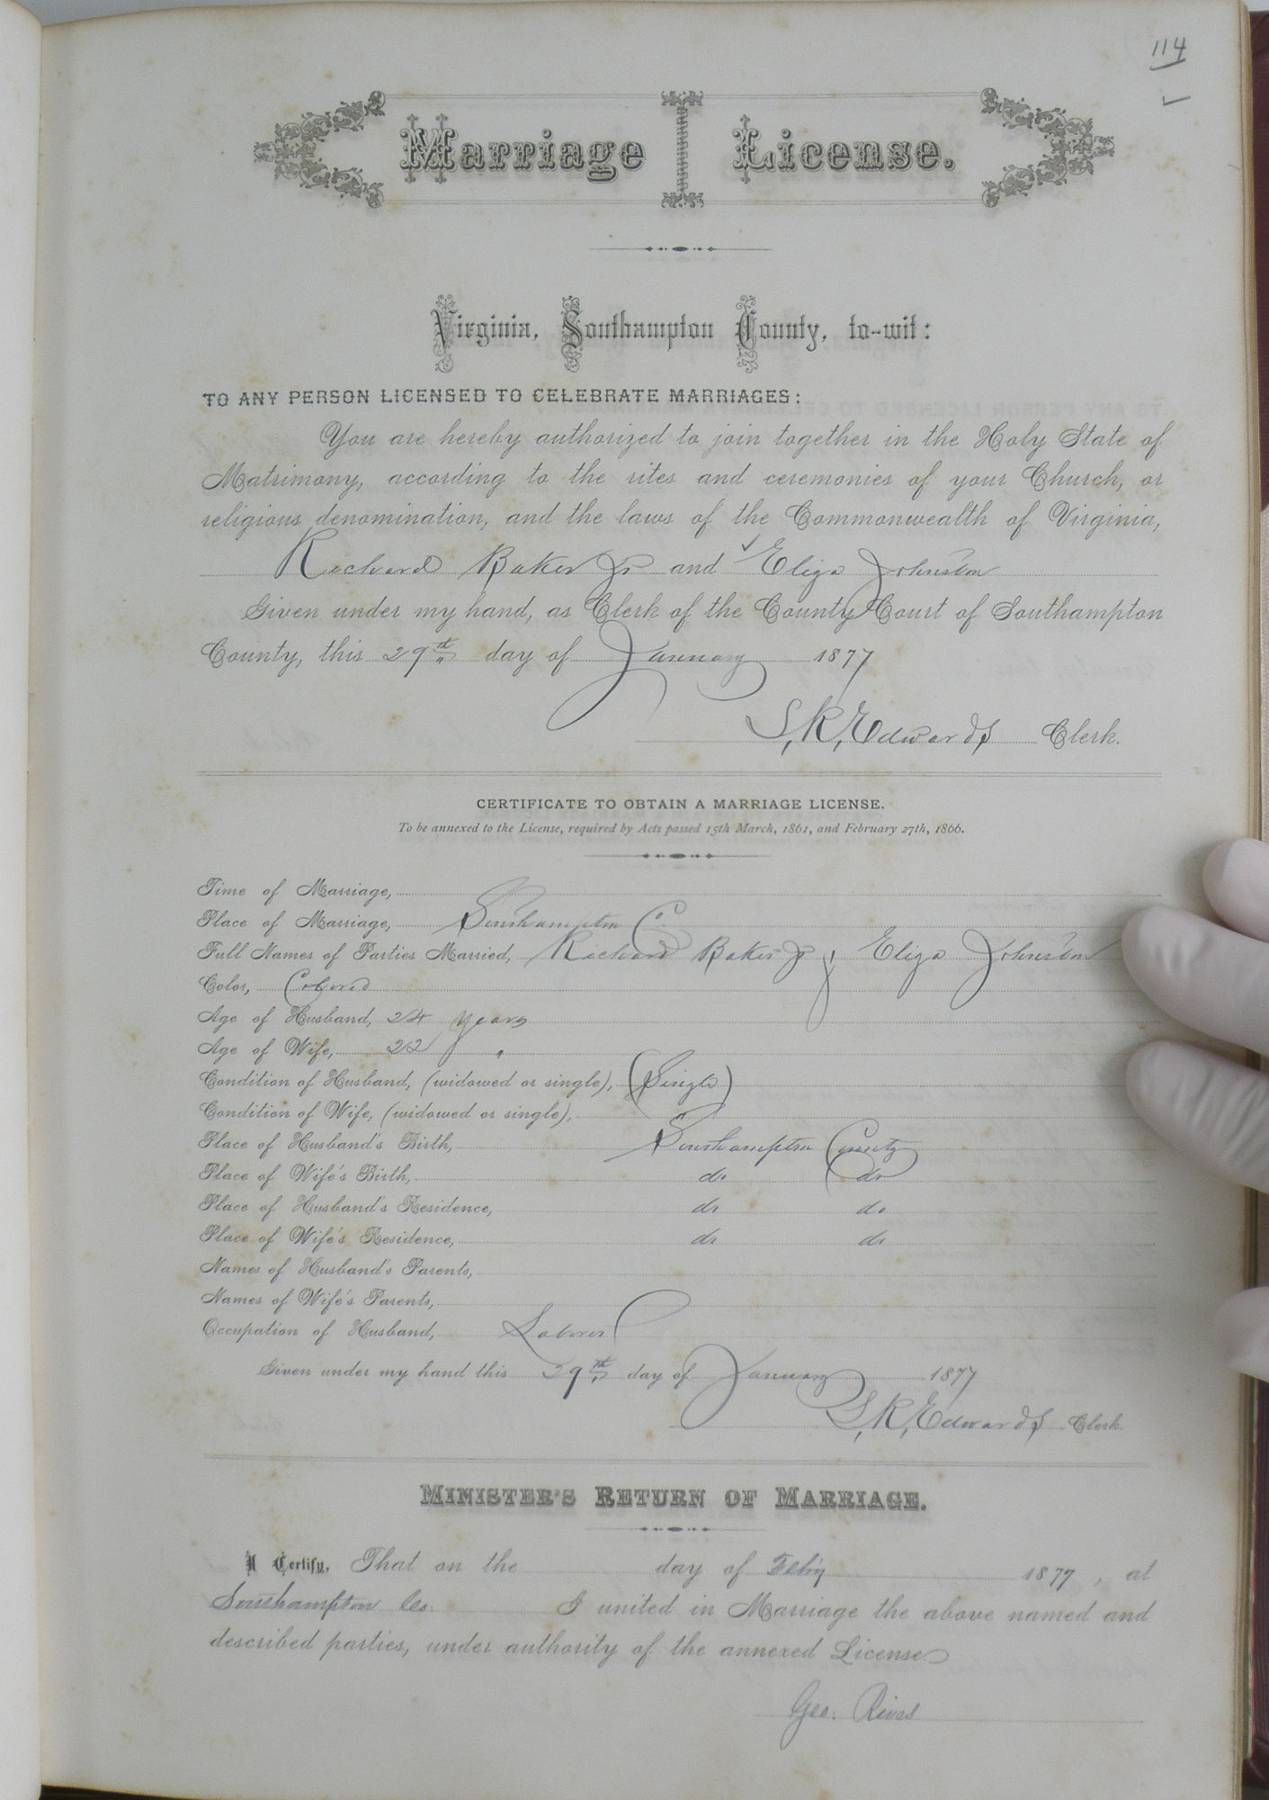 114
Marriage License.
Virginia, Southampton County, to-wit:
TO ANY PERSON LICENSED TO CELEBRATE MARRIAGES:
You are hereby authorized to join together in the Holy State of
Matrimony, according to the rites and ceremonies of your Church, or
religious denomination, and the laws of the Commonwealth of Virginia,
Richard Baker Jr and Eliza Johnston
Given under my hand, as Clerk of the County Court of Southampton
County, this 29th day of January 1877
S, R, Edwards Clerk.
CERTIFICATE TO OBTAIN A MARRIAGE LICENSE.
To be annexed to the License, required by Acts passed 15th March, 1861, and February 27th, 1866.
Time of Marriage,
Place of Marriage, Southampton Co.
Full Names of Parties Married, Richard Baker Jr & Eliza Johnston
Color, Colored
Age of Husband, 24 years
Age of Wife, 22 "
Condition of Husband, (widowed or single), (Single)
Condition of Wife, (widowed or single),
Place of Husband's Birth, Southampton County
Place of Wife's Birth, do do
Place of Husband's Residence, do do
Place of Wife's Residence, do do
Names of Husband's Parents,
Names of Wife's Parents,
Occupation of Husband, Laborer
Given under my hand this 29th day of January 1877
S, R, Edwards Clerk.
MINISTER'S RETURN OF MARRIAGE.
I Certify, That on the day of Feb'y 1877, at
Southampton Co. I united in Marriage the above named and
described parties, under authority of the annexed License
Geo. Rives